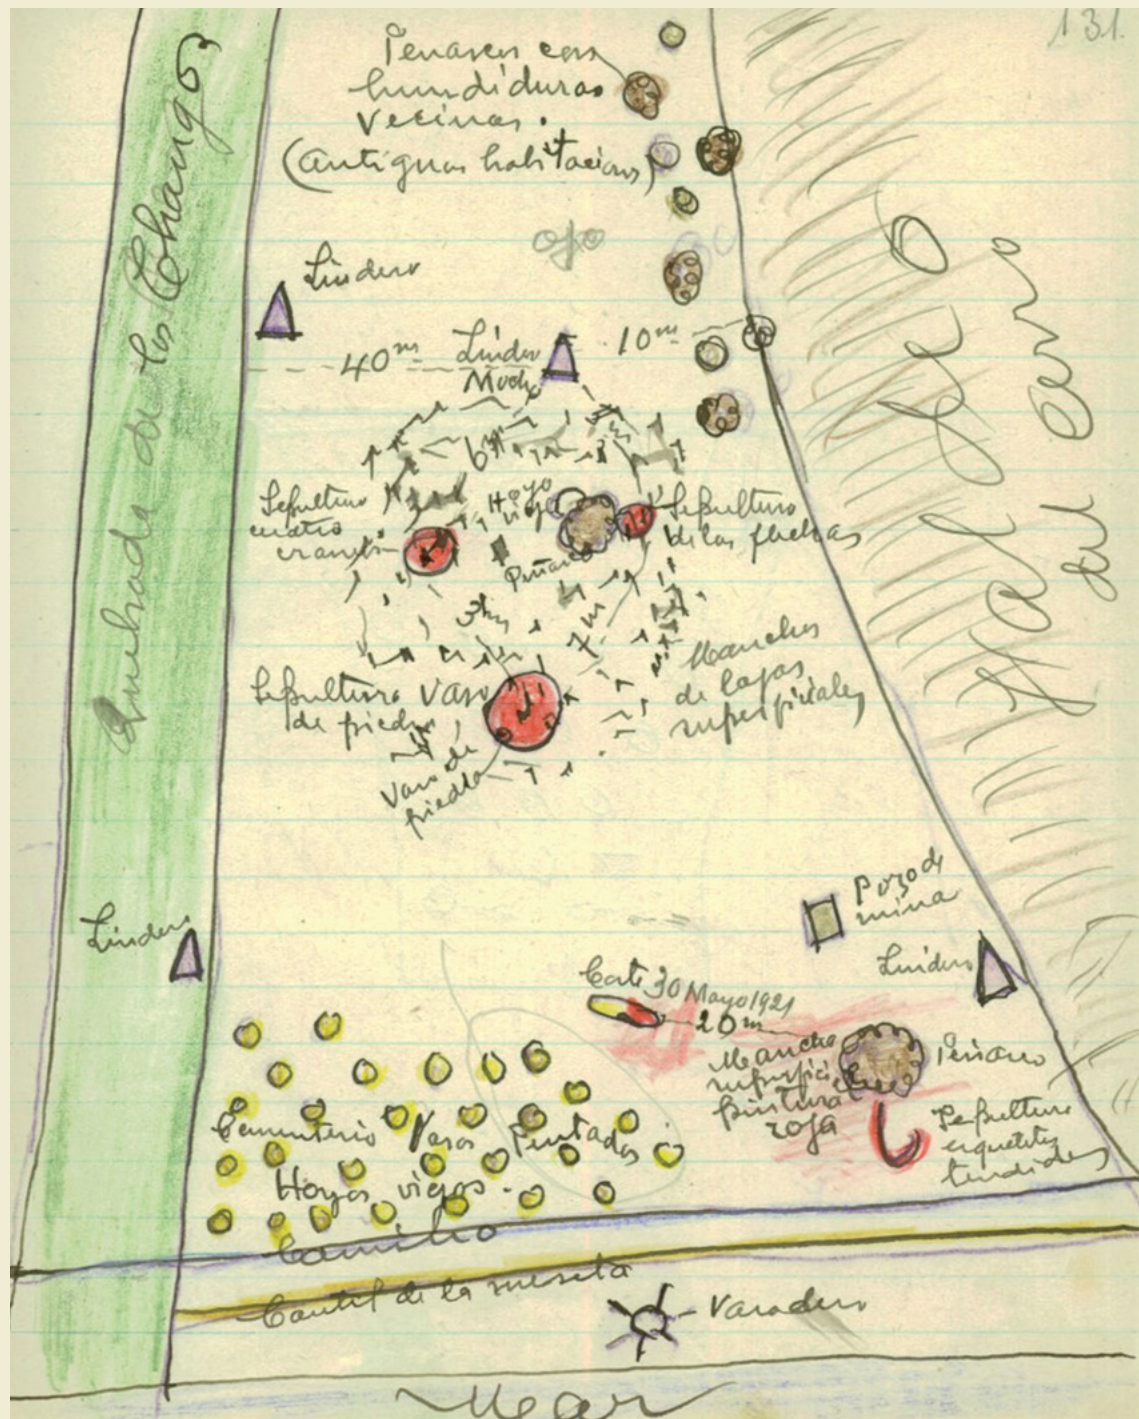 131.
Penascos con
hundiduras
vecinas.
(Antiguas habitaciones)
Quebrada de los Changos
ojo
Lindero
40m
Lindero
Mocho
10m
Falda
del Cerro
6m
Sepultura
cuatro
craneos
Hoyo
viejo
Peñasco
Sepultura
de las flechas
7m
Manchas
de lajas
superficiales
Sepultura vaso
de piedra
Vaso de
piedra
Pozo de
mina
Lindero
Lindero
Corte 30 Mayo 1921
20m
Mancha
superfici
pintura
roja
Peñasco
Sepultura
esqueletos
tendidos
Cementerio Vasos Pintados
Hoyos viejos.
Camino
Cantil de la meseta
Varadero
Mar